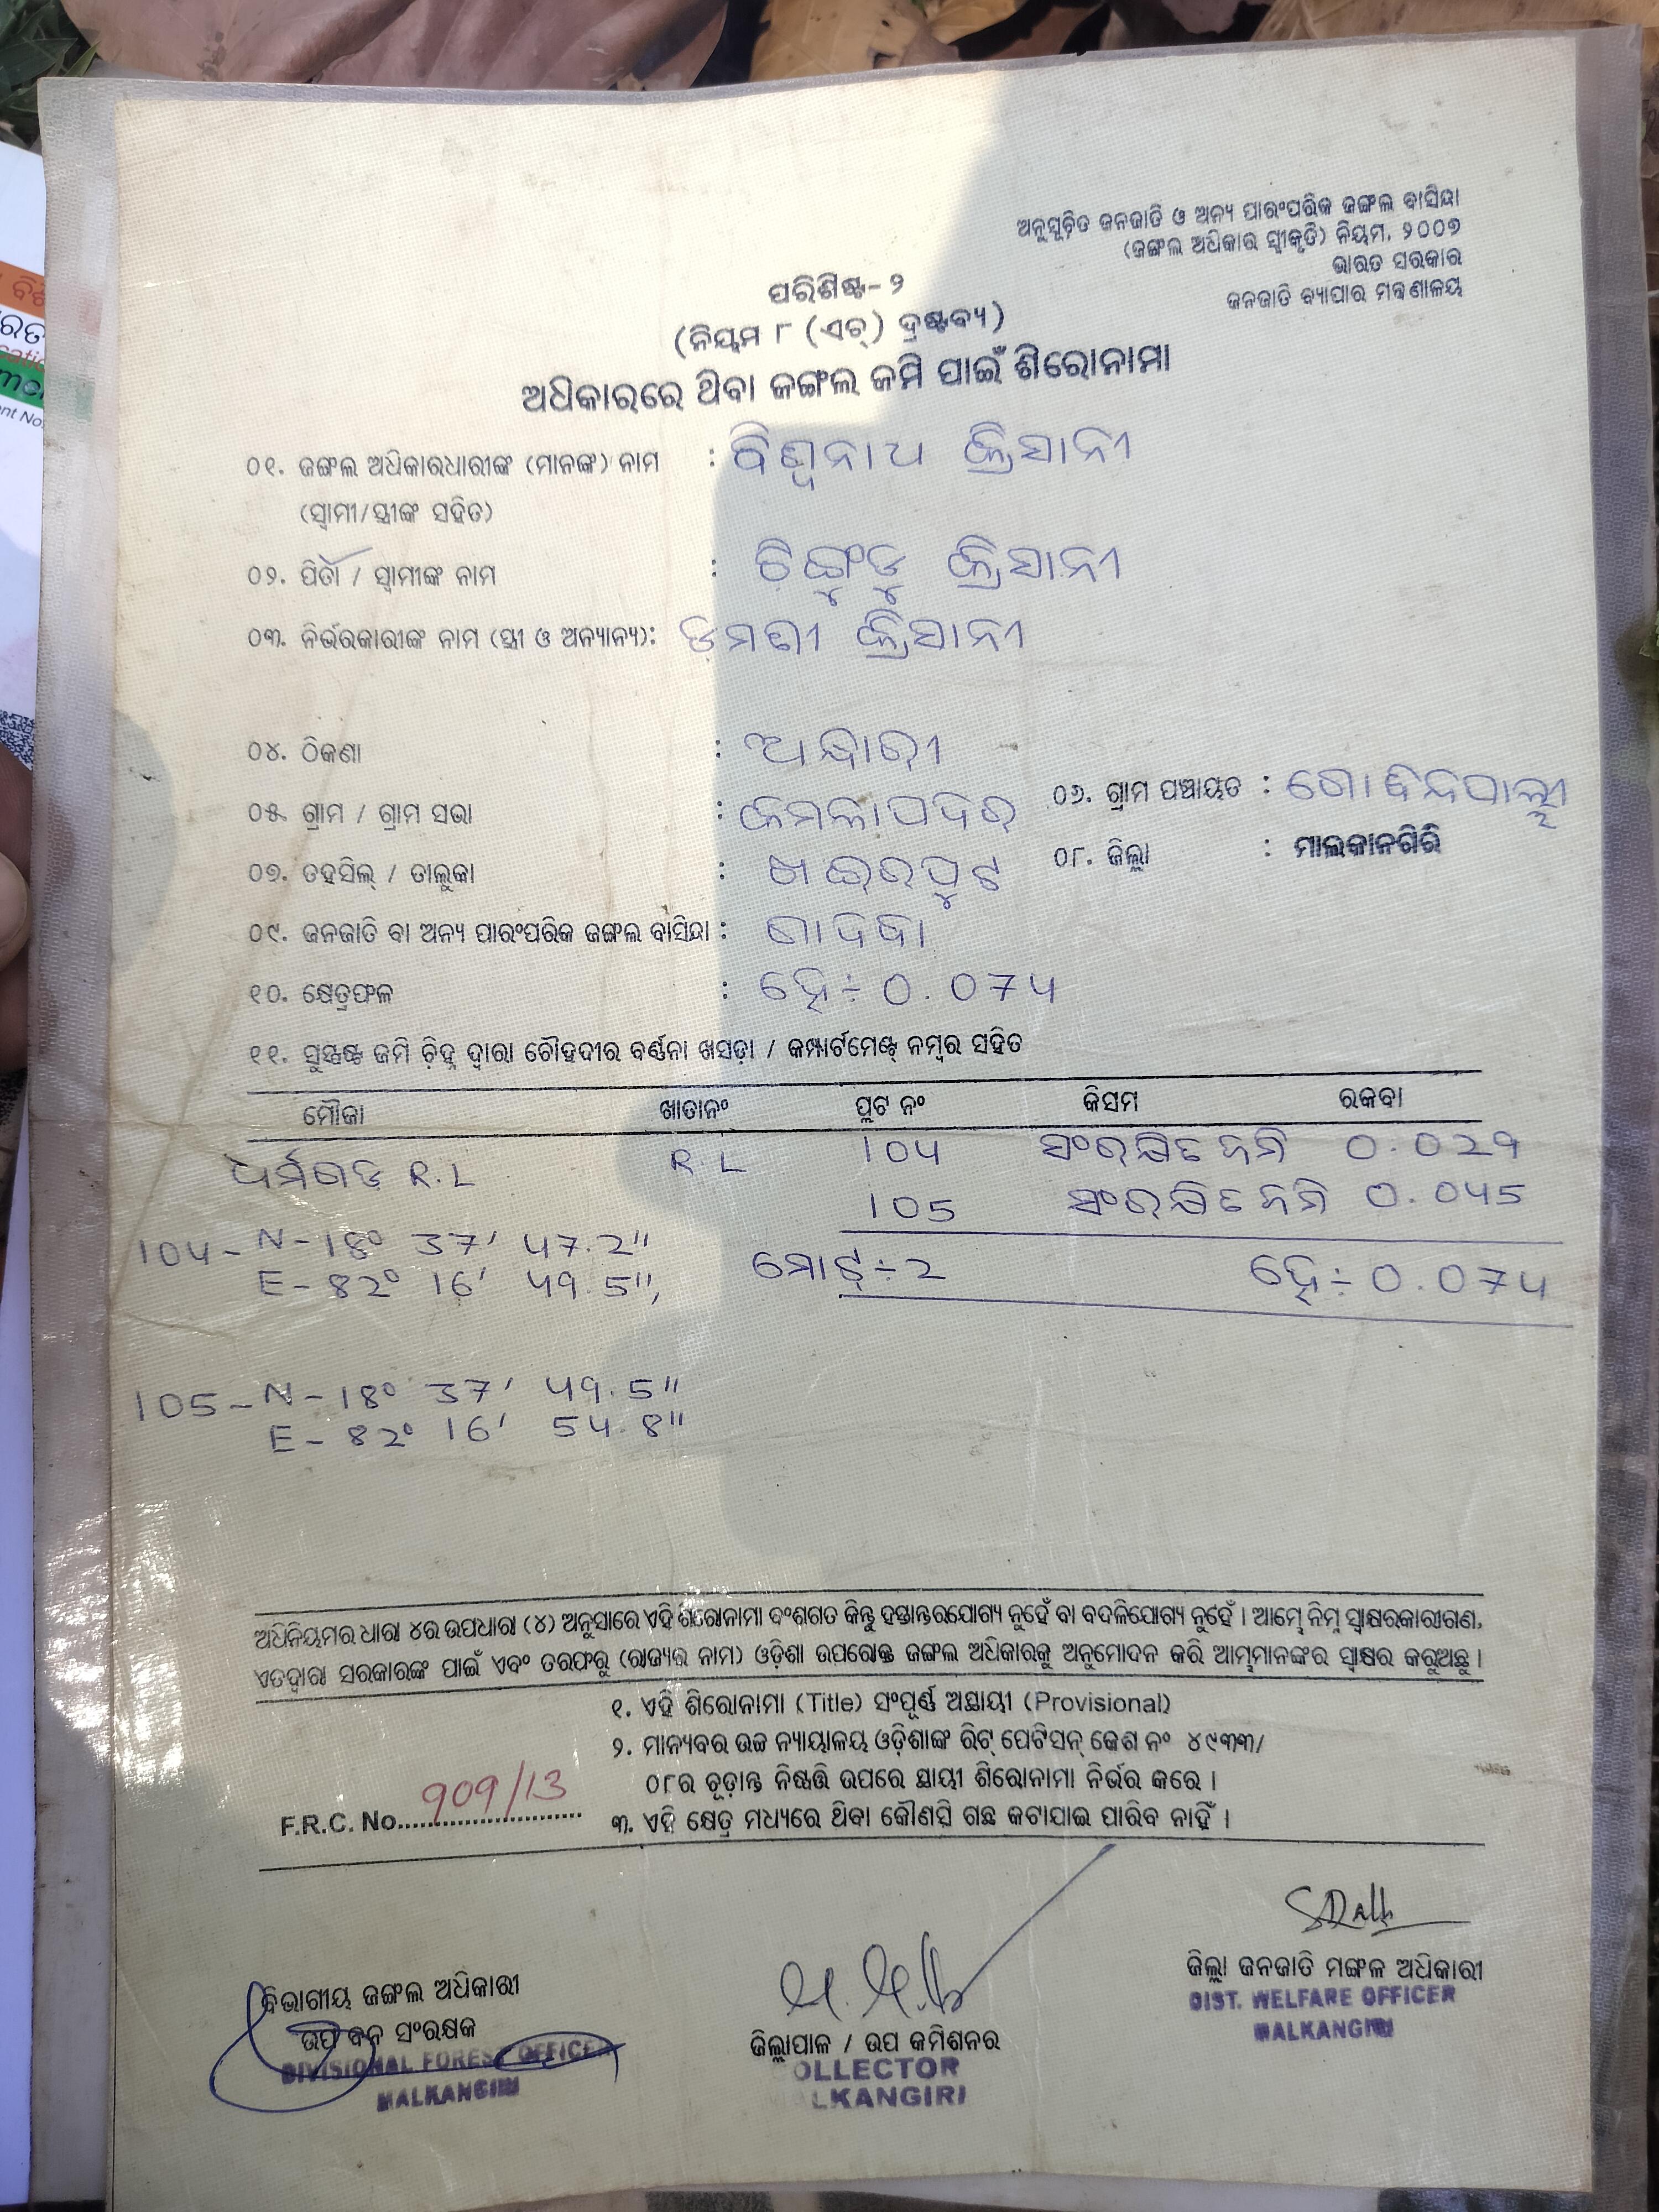 ଅନୁସୂଚିତ ଜନଜାତି ଓ ଅନ୍ୟ ପାରଂପରିକ ଜଙ୍ଗଲ ବାସିନ୍ଦା
(ଜଙ୍ଗଲ ଅଧିକାର ସ୍ୱୀକୃତି) ନିୟମ, ୨୦୦୭
ଭାରତ ସରକାର
ଜନଜାତି ବ୍ୟାପାର ମନ୍ତ୍ରଣାଳୟ
ପରିଶିଷ୍ଟ-୨
(ନିୟମ ୮ (ଏଚ୍) ଦ୍ରଷ୍ଟବ୍ୟ)
ଅଧିକାରରେ ଥିବା ଜଙ୍ଗଲ ଜମି ପାଇଁ ଶିରୋନାମା
୦୧. ଜଙ୍ଗଲ ଅଧିକାରଧାରୀଙ୍କ (ମାନଙ୍କ) ନାମ : ବିଶ୍ୱନାଥ କ୍ରିସାନୀ
(ସ୍ୱାମୀ/ସ୍ତ୍ରୀଙ୍କ ସହିତ)
୦୨. ପିତା / ସ୍ୱାମୀଙ୍କ ନାମ : କ୍ରିସାନୀ
୦୩. ନିର୍ଭରକାରୀଙ୍କ ନାମ (ସ୍ତ୍ରୀ ଓ ଅନ୍ୟାନ୍ୟ): କ୍ରିସାନୀ
୦୪. ଠିକଣା :
୦୫. ଗ୍ରାମ / ଗ୍ରାମ ସଭା : କମଳାପଦର ୦୬. ଗ୍ରାମ ପଞ୍ଚାୟତ : ଗୋବିନ୍ଦପାଲ୍ଲୀ
୦୭. ତହସିଲ୍ / ତାଲୁକା : ଖଇରପୁଟ ୦୮. ଜିଲ୍ଲା : ମାଲକାନଗିରି
୦୯. ଜନଜାତି ବା ଅନ୍ୟ ପାରଂପରିକ ଜଙ୍ଗଲ ବାସିନ୍ଦା : ଗାଦବା
୧୦. କ୍ଷେତ୍ରଫଳ : ହେ÷ 0.074
୧୧. ସୁସ୍ପଷ୍ଟ ଜମି ଚିହ୍ନ ଦ୍ୱାରା ଚୌହଦୀର ବର୍ଣ୍ଣନା ଖସଡ଼ା / କମ୍ପାର୍ଟମେଣ୍ଟ ନମ୍ବର ସହିତ
ମୌଜା ଖାତାନଂ ପ୍ଲଟ ନଂ କିସମ ରକବା
ଧର୍ମଗଡ R.L R.L 104 ସଂରକ୍ଷିତ ଜମି 0.029
105 ସଂରକ୍ଷିତ ଜମି 0.045
104- N-18° 37' 47.2"
E-82° 16' 49.5", ମୋଟ୍÷2 ହେ÷ 0.074
105- N-18° 37' 49.5"
E-82° 16' 54.8"
ଅଧିନିୟମର ଧାରା ୪ର ଉପଧାରା (୪) ଅନୁସାରେ ଏହି ଶିରୋନାମା ବଂଶଗତ କିନ୍ତୁ ହସ୍ତାନ୍ତରଯୋଗ୍ୟ ନୁହେଁ ବା ବଦଳିଯୋଗ୍ୟ ନୁହେଁ । ଆମ୍ଭେ ନିମ୍ନ ସ୍ୱାକ୍ଷରକାରୀଗଣ,
ଏତଦ୍ୱାରା ସରକାରଙ୍କ ପାଇଁ ଏବଂ ତରଫରୁ (ରାଜ୍ୟର ନାମ) ଓଡ଼ିଶା ଉପରୋକ୍ତ ଜଙ୍ଗଲ ଅଧିକାରକୁ ଅନୁମୋଦନ କରି ଆମ୍ଭମାନଙ୍କର ସ୍ୱାକ୍ଷର କରୁଅଛୁ ।
୧. ଏହି ଶିରୋନାମା (Title) ସଂପୂର୍ଣ୍ଣ ଅସ୍ଥାୟୀ (Provisional)
୨. ମାନ୍ୟବର ଉଚ୍ଚ ନ୍ୟାୟାଳୟ ଓଡ଼ିଶାଙ୍କ ରିଟ୍ ପେଟିସନ୍ କେଶ ନଂ ୪୯୩୩/
୦୮ର ଚୂଡ଼ାନ୍ତ ନିଷ୍ପତ୍ତି ଉପରେ ସ୍ଥାୟୀ ଶିରୋନାମା ନିର୍ଭର କରେ ।
F.R.C. No. 909/13
୩. ଏହି କ୍ଷେତ୍ର ମଧ୍ୟରେ ଥିବା କୌଣସି ଗଛ କଟାଯାଇ ପାରିବ ନାହିଁ ।
ବିଭାଗୀୟ ଜଙ୍ଗଲ ଅଧିକାରୀ
ଉପ ବନ ସଂରକ୍ଷକ
DIVISIONAL FOREST OFFICER
MALKANGIRI
ଜିଲ୍ଲାପାଳ / ଉପ କମିଶନର
OLLECTOR
LKANGIRI
ଜିଲ୍ଲା ଜନଜାତି ମଙ୍ଗଳ ଅଧିକାରୀ
DIST. WELFARE OFFICER
MALKANGIRI